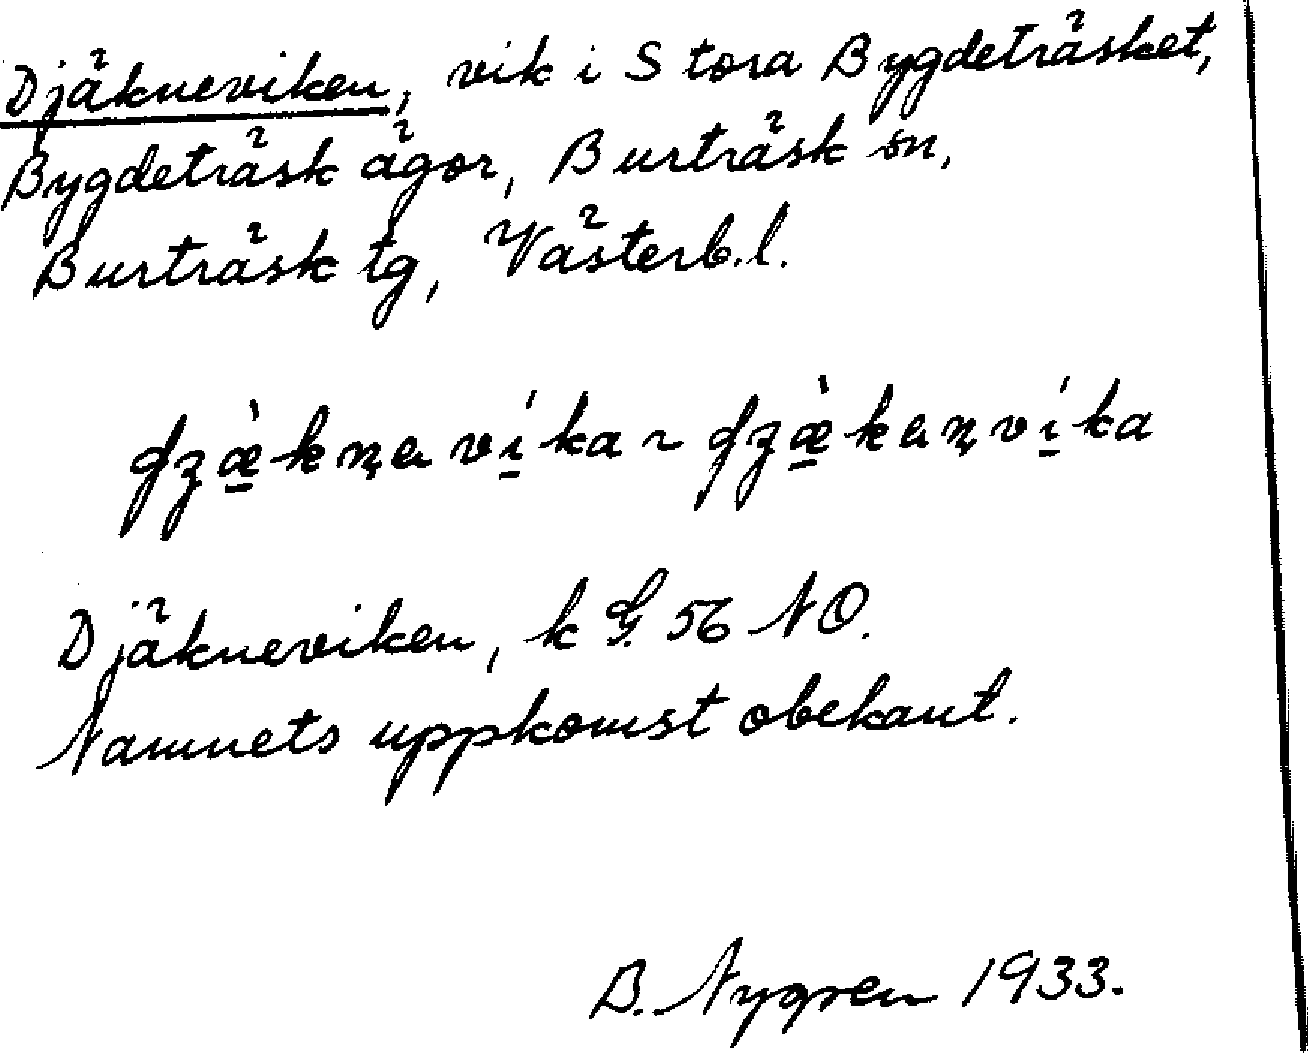 Djäkneviken, vik i Stora Bygdeträsket,
Bygdeträsk ägor, Burträsk sn,
Burträsk tg, Västerb.l.
Djäkneviken, k G. 56 NO.
Namnets uppkomst obekant.
B. Nygren 1933.